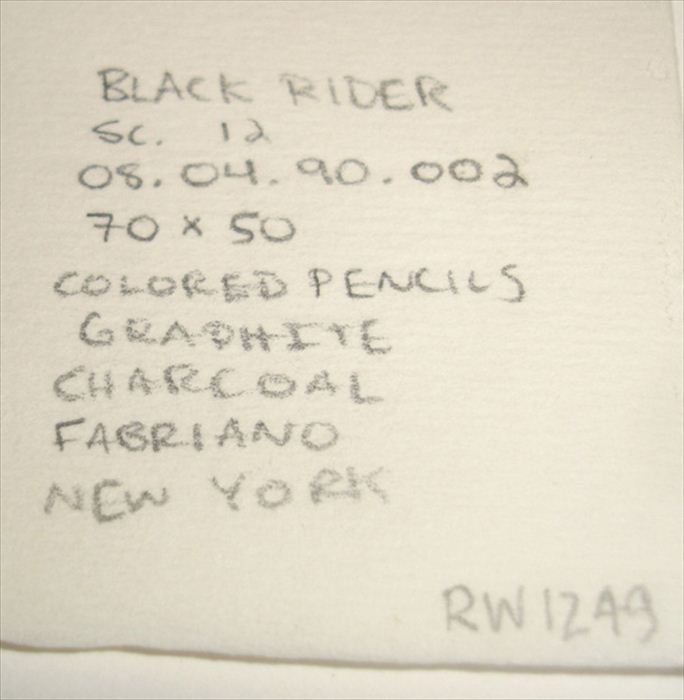 BLACK RIDER
SC. 12
08.04.90.002
70 x 50
COLORED PENCILS
GRAPHITE
CHARCOAL
FABRIANO
NEW YORK
RW1249